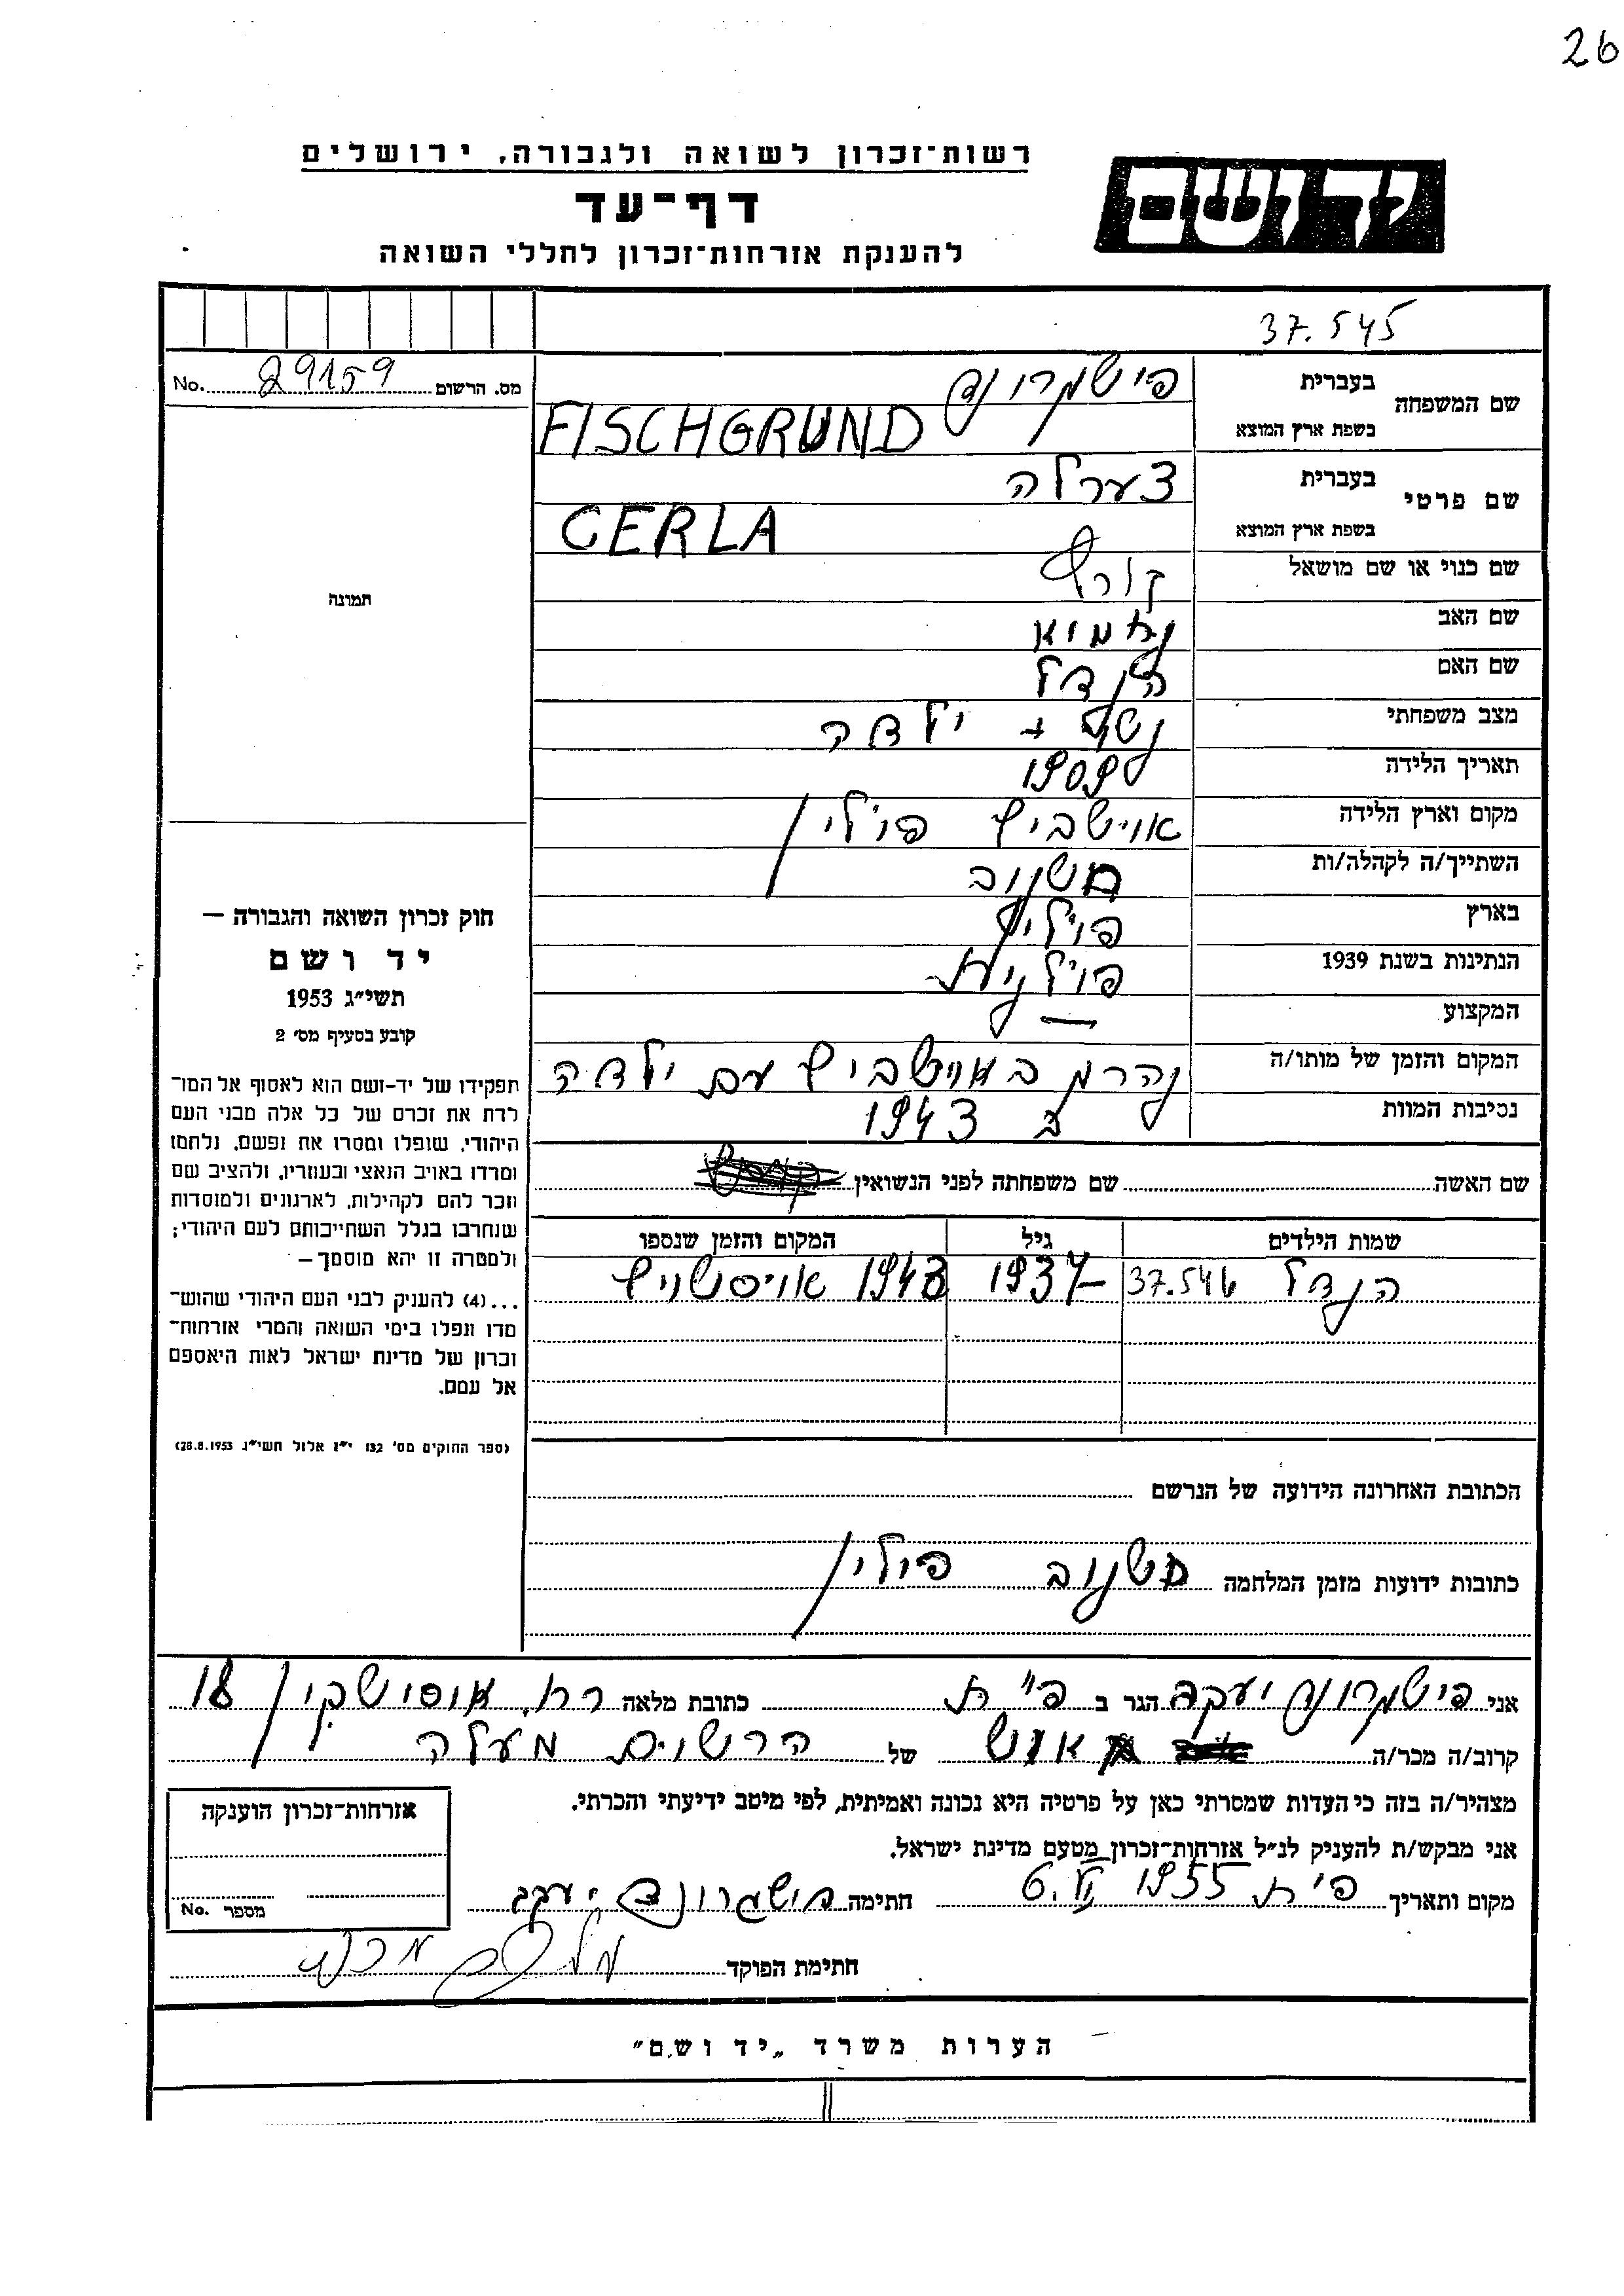 26
רשות-זכרון לשואה ולגבורה, ירושלים
יד ושם
דף-עד
להענקת אזרחות-זכרון לחללי השואה
37.545
מס. הרשום 29159 No.
שם המשפחה בעברית פישגרונד
בשפת ארץ המוצא FISCHGRUND
שם פרטי בעברית צערלה
בשפת ארץ המוצא CERLA
שם כנוי או שם מושאל
שם האב
שם האם הנדל
מצב משפחתי + ילדה
תאריך הלידה 1909
מקום וארץ הלידה אוישביץ פולין
השתייך/ה לקהלה/ות חשנוב
בארץ פולין
הנתינות בשנת 1939 פולנית
המקצוע —
המקום והזמן של מותו/ה נהרג באוישביץ עם ילדה
נסיבות המוות ב 1943
שם האשה שם משפחתה לפני הנשואין
שמות הילדים גיל המקום והזמן שנספו
הנדל 37.546 1937 1943 אויסשויץ
הכתובת האחרונה הידועה של הנרשם
כתובות ידועות מזמן המלחמה חשנוב פולין
תמונה
חוק זכרון השואה והגבורה —
יד ושם
תשי"ג 1953
קובע בסעיף מס' 2
תפקידו של יד-ושם הוא לאסוף אל המו־
לדת את זכרם של כל אלה מבני העם
היהודי, שנפלו ומסרו את נפשם, נלחמו
ומרדו באויב הנאצי ובעוזריו, ולהציב שם
וזכר להם לקהילות, לארגונים ולמוסדות
שנחרבו בגלל השתייכותם לעם היהודי;
ולמטרה זו יהא מוסמך —
...(4) להעניק לבני העם היהודי שהוש־
מדו ונפלו בימי השואה והמרי אזרחות־
זכרון של מדינת ישראל לאות היאספם
אל עמם.
(ספר החוקים מס' 132 י"ז אלול תשי"ג 28.8.1953)
אני פישגרונד יעקב הגר ב פ"ת כתובת מלאה רח. אוסישקין 18
קרוב/ה מכר/ה של הרשום מעלה
מצהיר/ה בזה כי העדות שמסרתי כאן על פרטיה היא נכונה ואמיתית, לפי מיטב ידיעתי והכרתי.
אני מבקש/ת להעניק לנ"ל אזרחות-זכרון מטעם מדינת ישראל.
מקום ותאריך פ"ת 6.VI 1955 חתימה פישגרונד יעקב
חתימת הפוקד
אזרחות-זכרון הוענקה
מספר No.
הערות משרד „יד ושם"